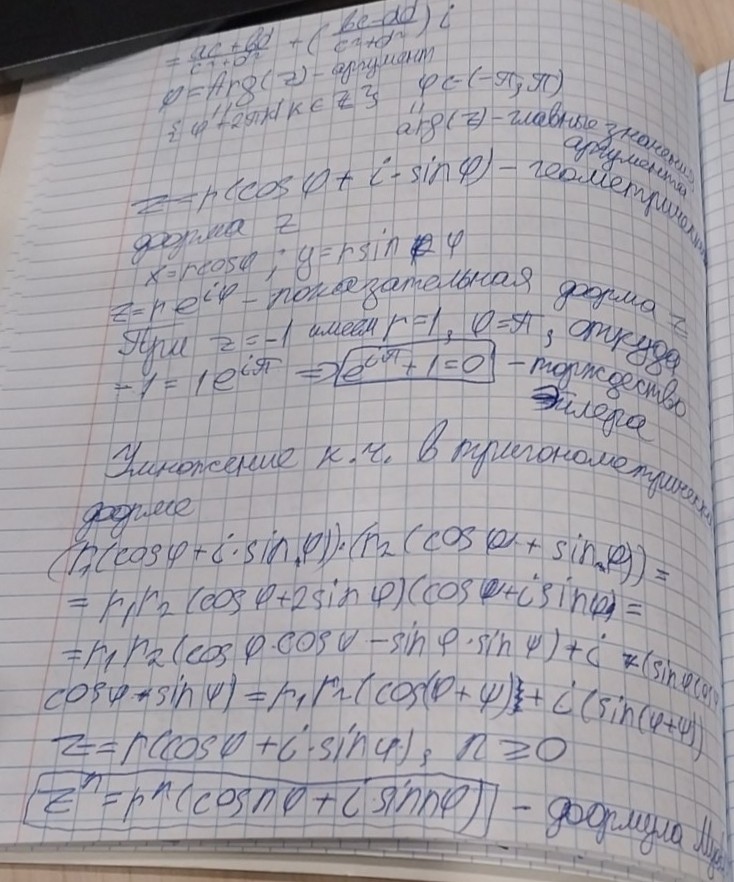 = ac+bd/c²+d² + (bc-ad/c²+d²) i
φ = Arg(z) - аргумент
{φ + 2πk | k ∈ Z}   φ ∈ (-π; π)
arg(z) - главные значения
аргумента
z = r(cos φ + i · sin φ) - геометрическая
форма z
x = r cos φ ; y = r sin φ
z = r e^{iφ} - показательная форма z
При z = -1 имеем r = 1, φ = π, откуда
-1 = 1 e^{iπ} => e^{iπ} + 1 = 0 - тождество
Эйлера
Умножение к.ч. в тригонометрическ
форме
(r₁(cos φ + i · sin φ)) · (r₂ (cos ψ + sin ψ)) =
= r₁ r₂ (cos φ + 2 sin φ)(cos ψ + i sin ψ) =
= r₁ r₂ (cos φ · cos ψ - sin φ · sin ψ) + i (sin φ cos
cos φ · sin ψ) = r₁ r₂ (cos(φ + ψ) + i (sin(φ+ψ))
z = r(cos φ + i · sin φ), n ≥ 0
zⁿ = rⁿ (cos nφ + i sin nφ) - формула Му